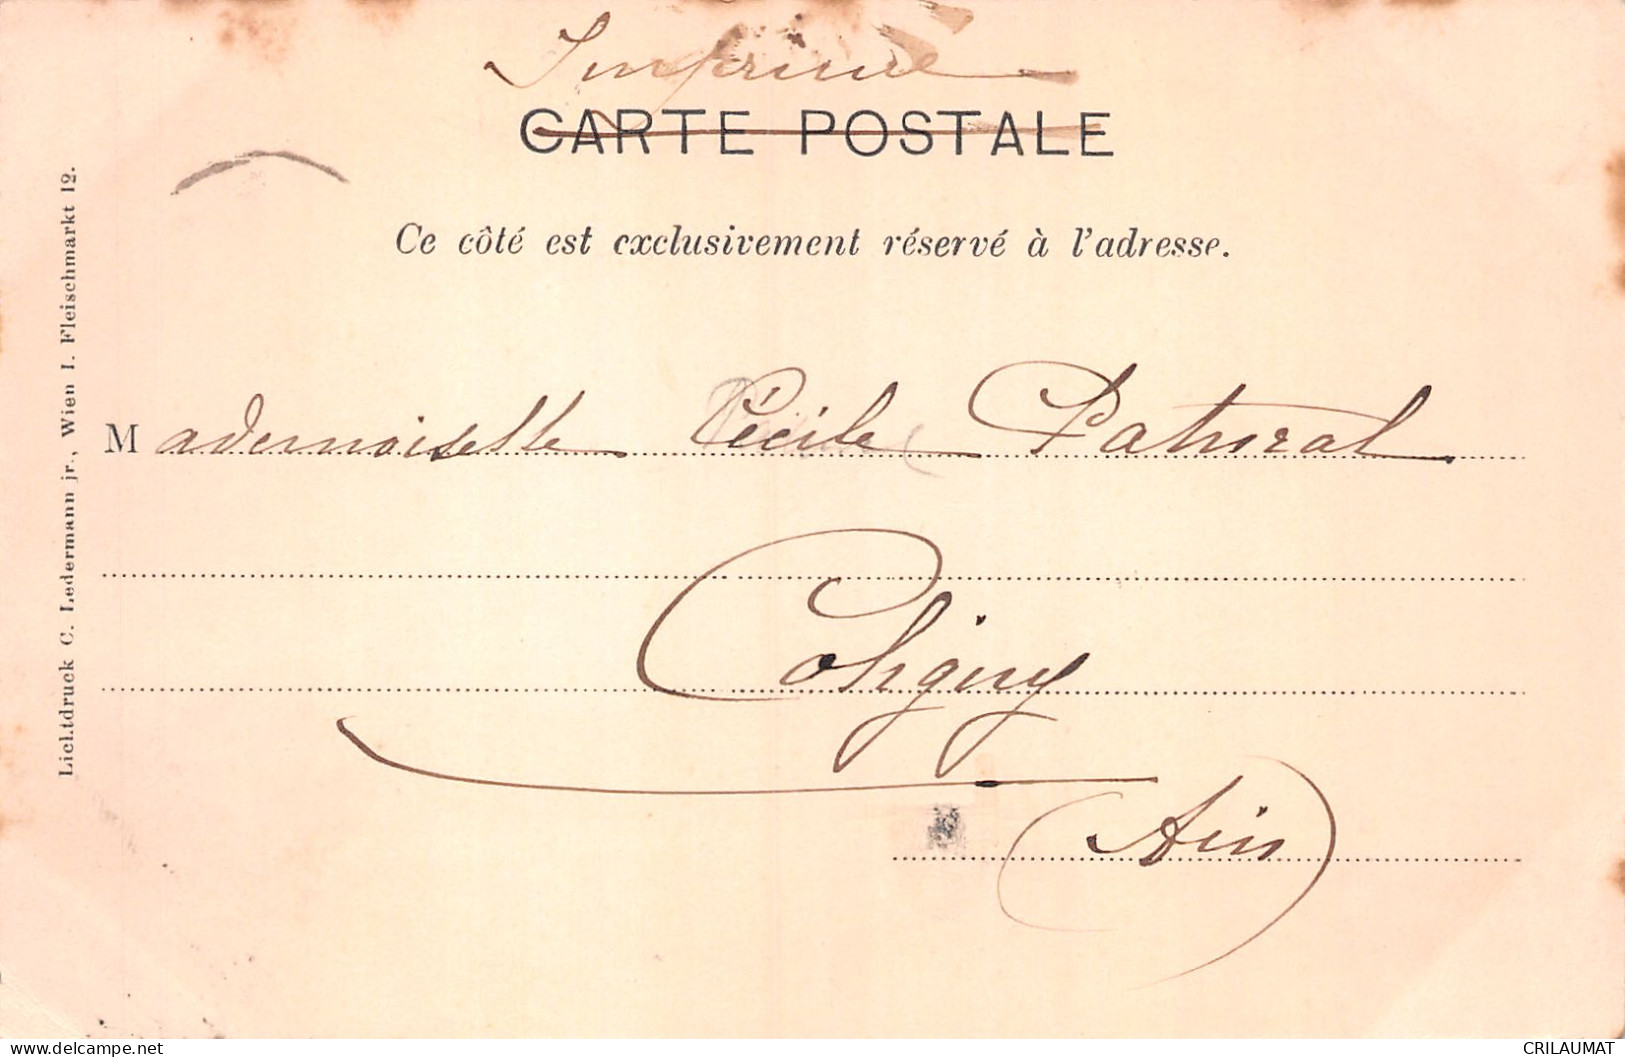 Imprimé
CARTE POSTALE
Ce côté est exclusivement réservé à l'adresse.
Mademoiselle Cécile
Coligny
(Ain)
Lichtdruck C. Ledermann jr., Wien I. Fleischmarkt 12.
delcampe.net
CRILAUMAT